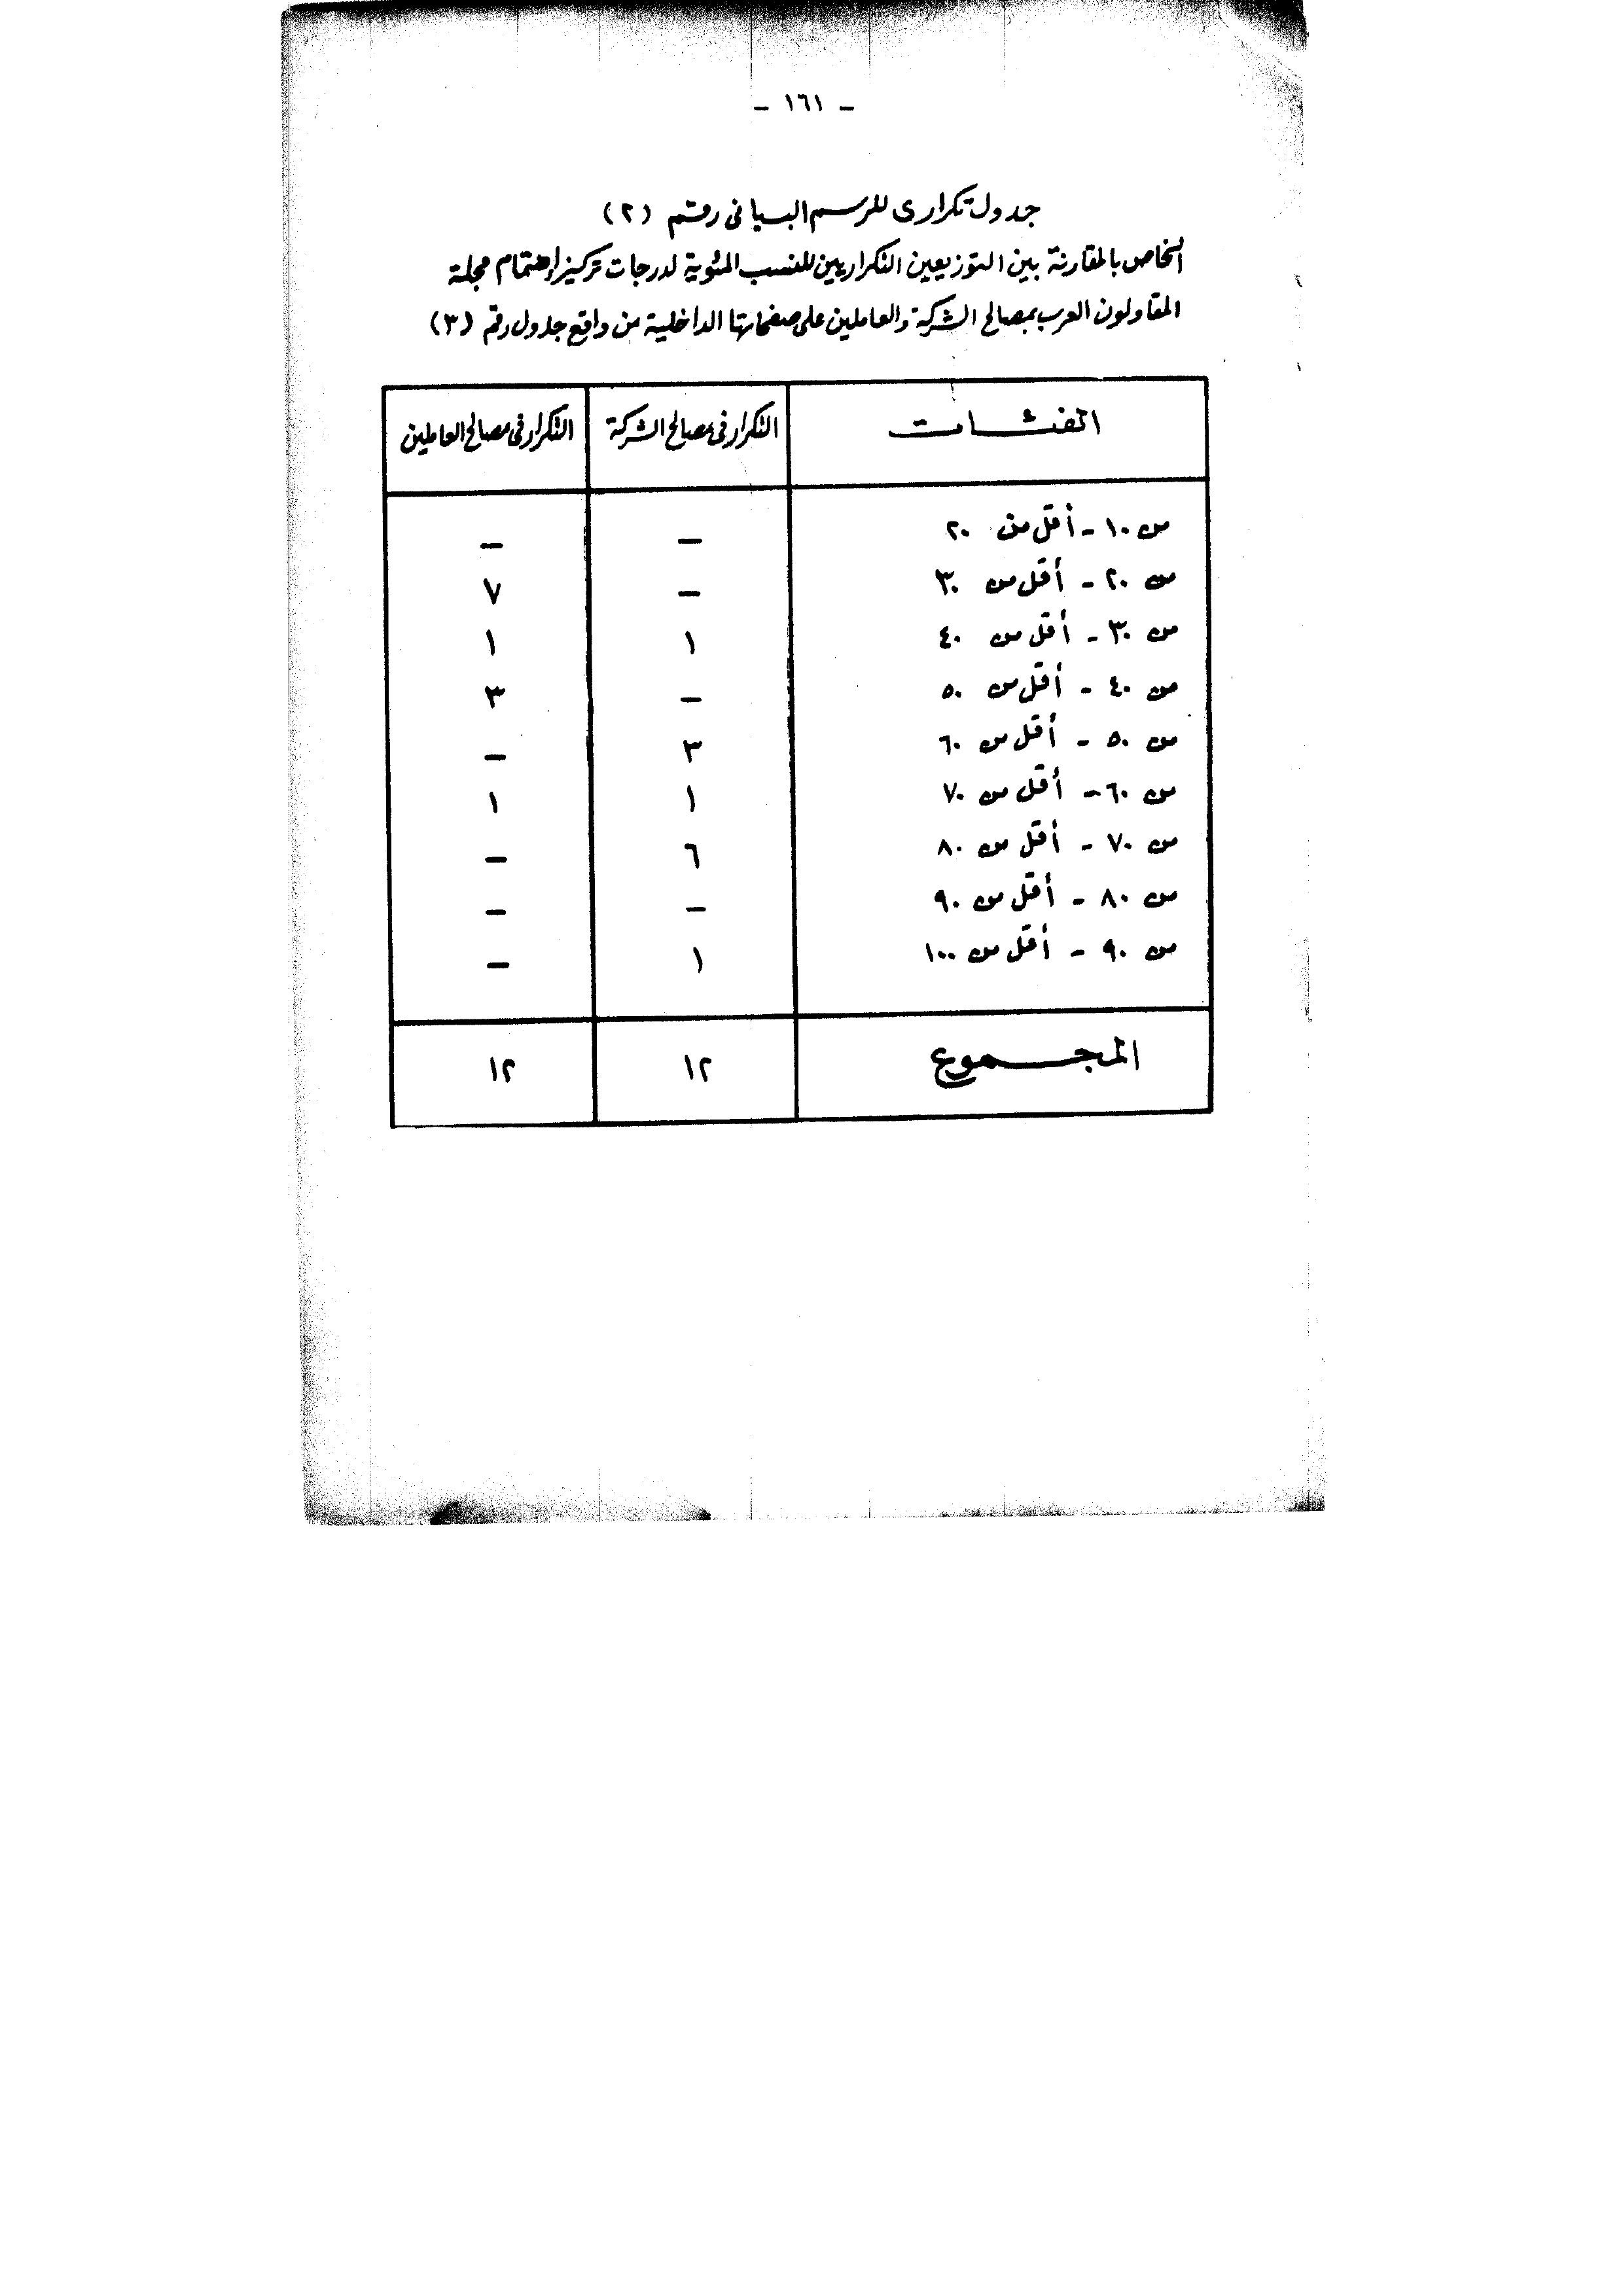 - ١٦١ -
جدول تكرارى للرسم البيانى رقم (٢)
الخاص بالمقارنة بين التوزيعين التكراريين للنسب المئوية لدرجات تركيز اهتمام مجلة
المقاولون العرب بمصالح الشركة والعاملين على صفحاتها الداخلية من واقع جدول رقم (٣)
الفئات التكرار فى مصالح الشركة التكرار فى مصالح العاملين
من ١٠ - أقل من ٢٠ - -
من ٢٠ - أقل من ٣٠ - ٧
من ٣٠ - أقل من ٤٠ ١ ١
من ٤٠ - أقل من ٥٠ - ٣
من ٥٠ - أقل من ٦٠ ٣ -
من ٦٠ - أقل من ٧٠ ١ ١
من ٧٠ - أقل من ٨٠ ٦ -
من ٨٠ - أقل من ٩٠ - -
من ٩٠ - أقل من ١٠٠ ١ -
المجموع ١٢ ١٢